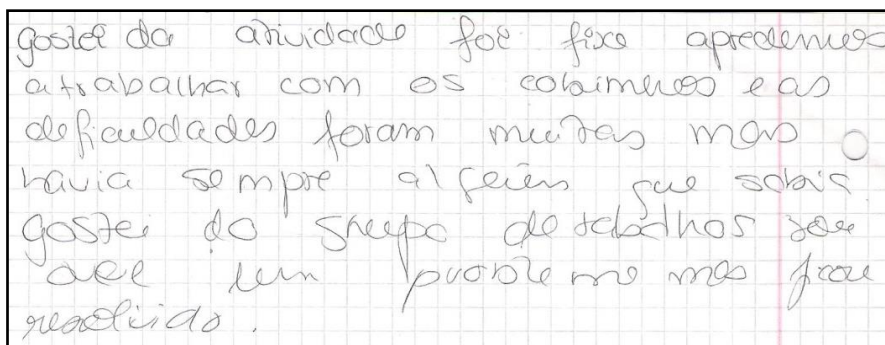 gostei da atividade foi fixe apredemos
a trabalhar com os eas
deficuldades foram muitas mas
havia sempre alguém que sabia
gostei do grupo de tabalhos
um problema mas ficou
resolvido.